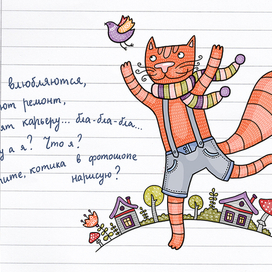 влюбляются,
ремонт,
карьеру... бла-бла-бла...
а я? Что я?
котика в фотошопе
нарисую?